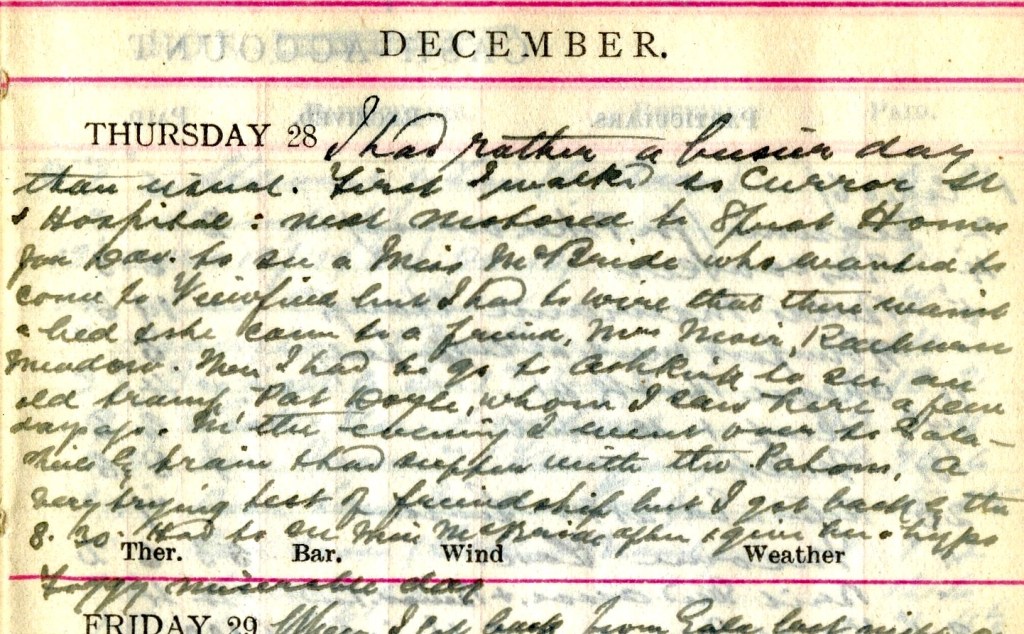 DECEMBER.
THURSDAY 28 I had rather a busier day
than usual. First I walked to Curror St
& Hospital: next motored to Homes
to see a Miss McBride who wanted to
come to Viewfield but I had to wire that there wasn't
a bed & she came to a friend, Mrs Moir,
Meadow. Then I had to go to Ashkirk to see an
old tramp, Pat Boyle, whom I saw here a few
days ago. In the evening I went over to Gala-
shiels by train & had supper with the Patons, a
very trying test of friendship but I got back by the
8.30. Had to see Miss McBride after & give her a hypo
Ther. Bar. Wind Weather
Foggy miserable day
FRIDAY 29 When I got back from Gala last night